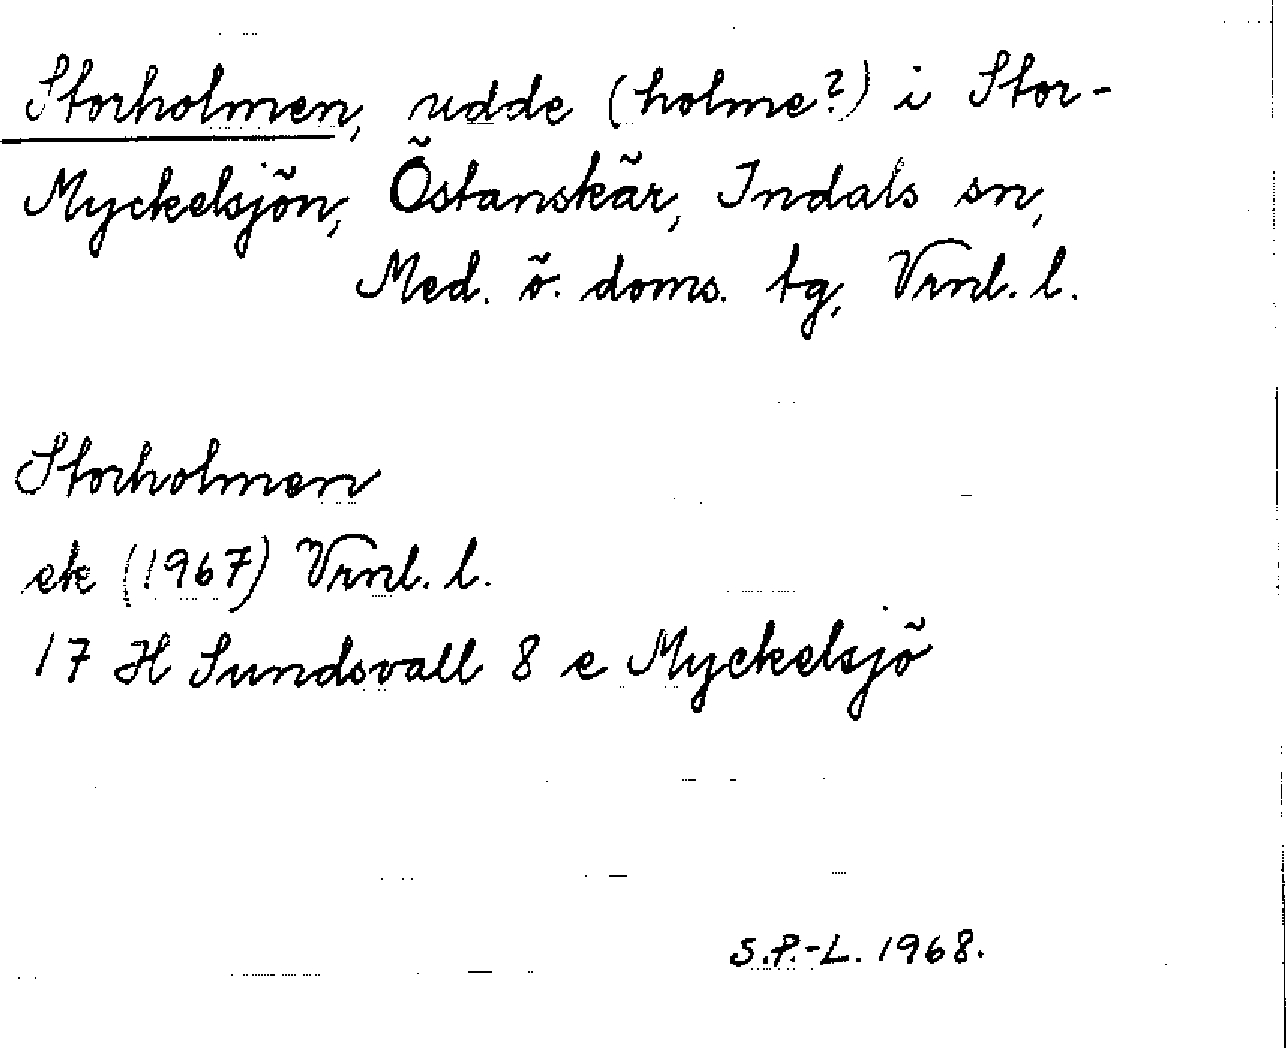 Storholmen, udde (holme?) i Stor-
Myckelsjön, Östanskär, Indals sn,
Med. ö. doms. tg, Vrnl. l.
Storholmen
ek (1967) Vrnl. l.
17 H Sundsvall 8 e Myckelsjö
S.P.-L. 1968.